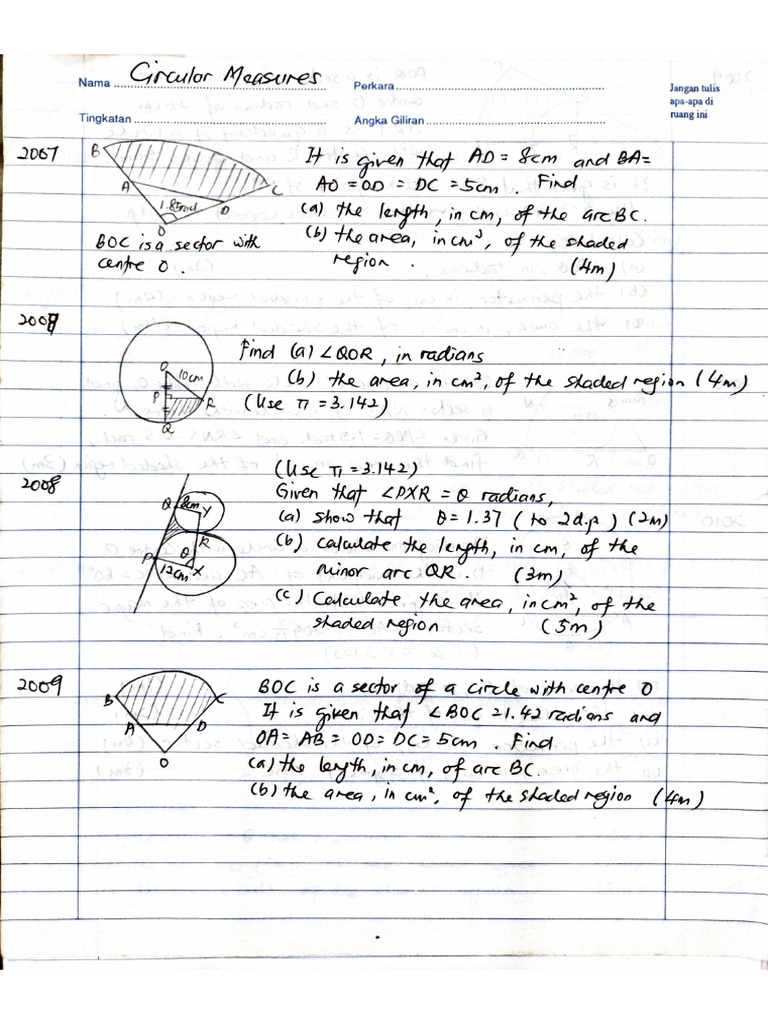 Nama Circular Measures
Perkara
Jangan tulis
apa-apa di
ruang ini
Tingkatan
Angka Giliran
2007
B
A
C
D
O
1.85rad
It is given that AD = 8cm and BA =
AO = OD = DC = 5cm. Find
(a) the length, in cm, of the arc BC.
(b) the area, in cm², of the shaded
region. (4m)
BOC is a sector with
centre O.
2008
O
10cm
P
R
Q
Find (a) ∠QOR, in radians
(b) the area, in cm², of the shaded region (4m)
(Use π = 3.142)
2008
Q
8cm
Y
R
P
θ
12cm
X
(Use π = 3.142)
Given that ∠PXR = θ radians,
(a) show that θ = 1.37 (to 2d.p) (2m)
(b) calculate the length, in cm, of the
minor arc QR. (3m)
(c) Calculate the area, in cm², of the
shaded region (5m)
2009
B
C
A
D
O
BOC is a sector of a circle with centre O
It is given that ∠BOC = 1.42 radians and
OA = AB = OD = DC = 5cm. Find
(a) the length, in cm, of arc BC.
(b) the area, in cm², of the shaded region (4m)